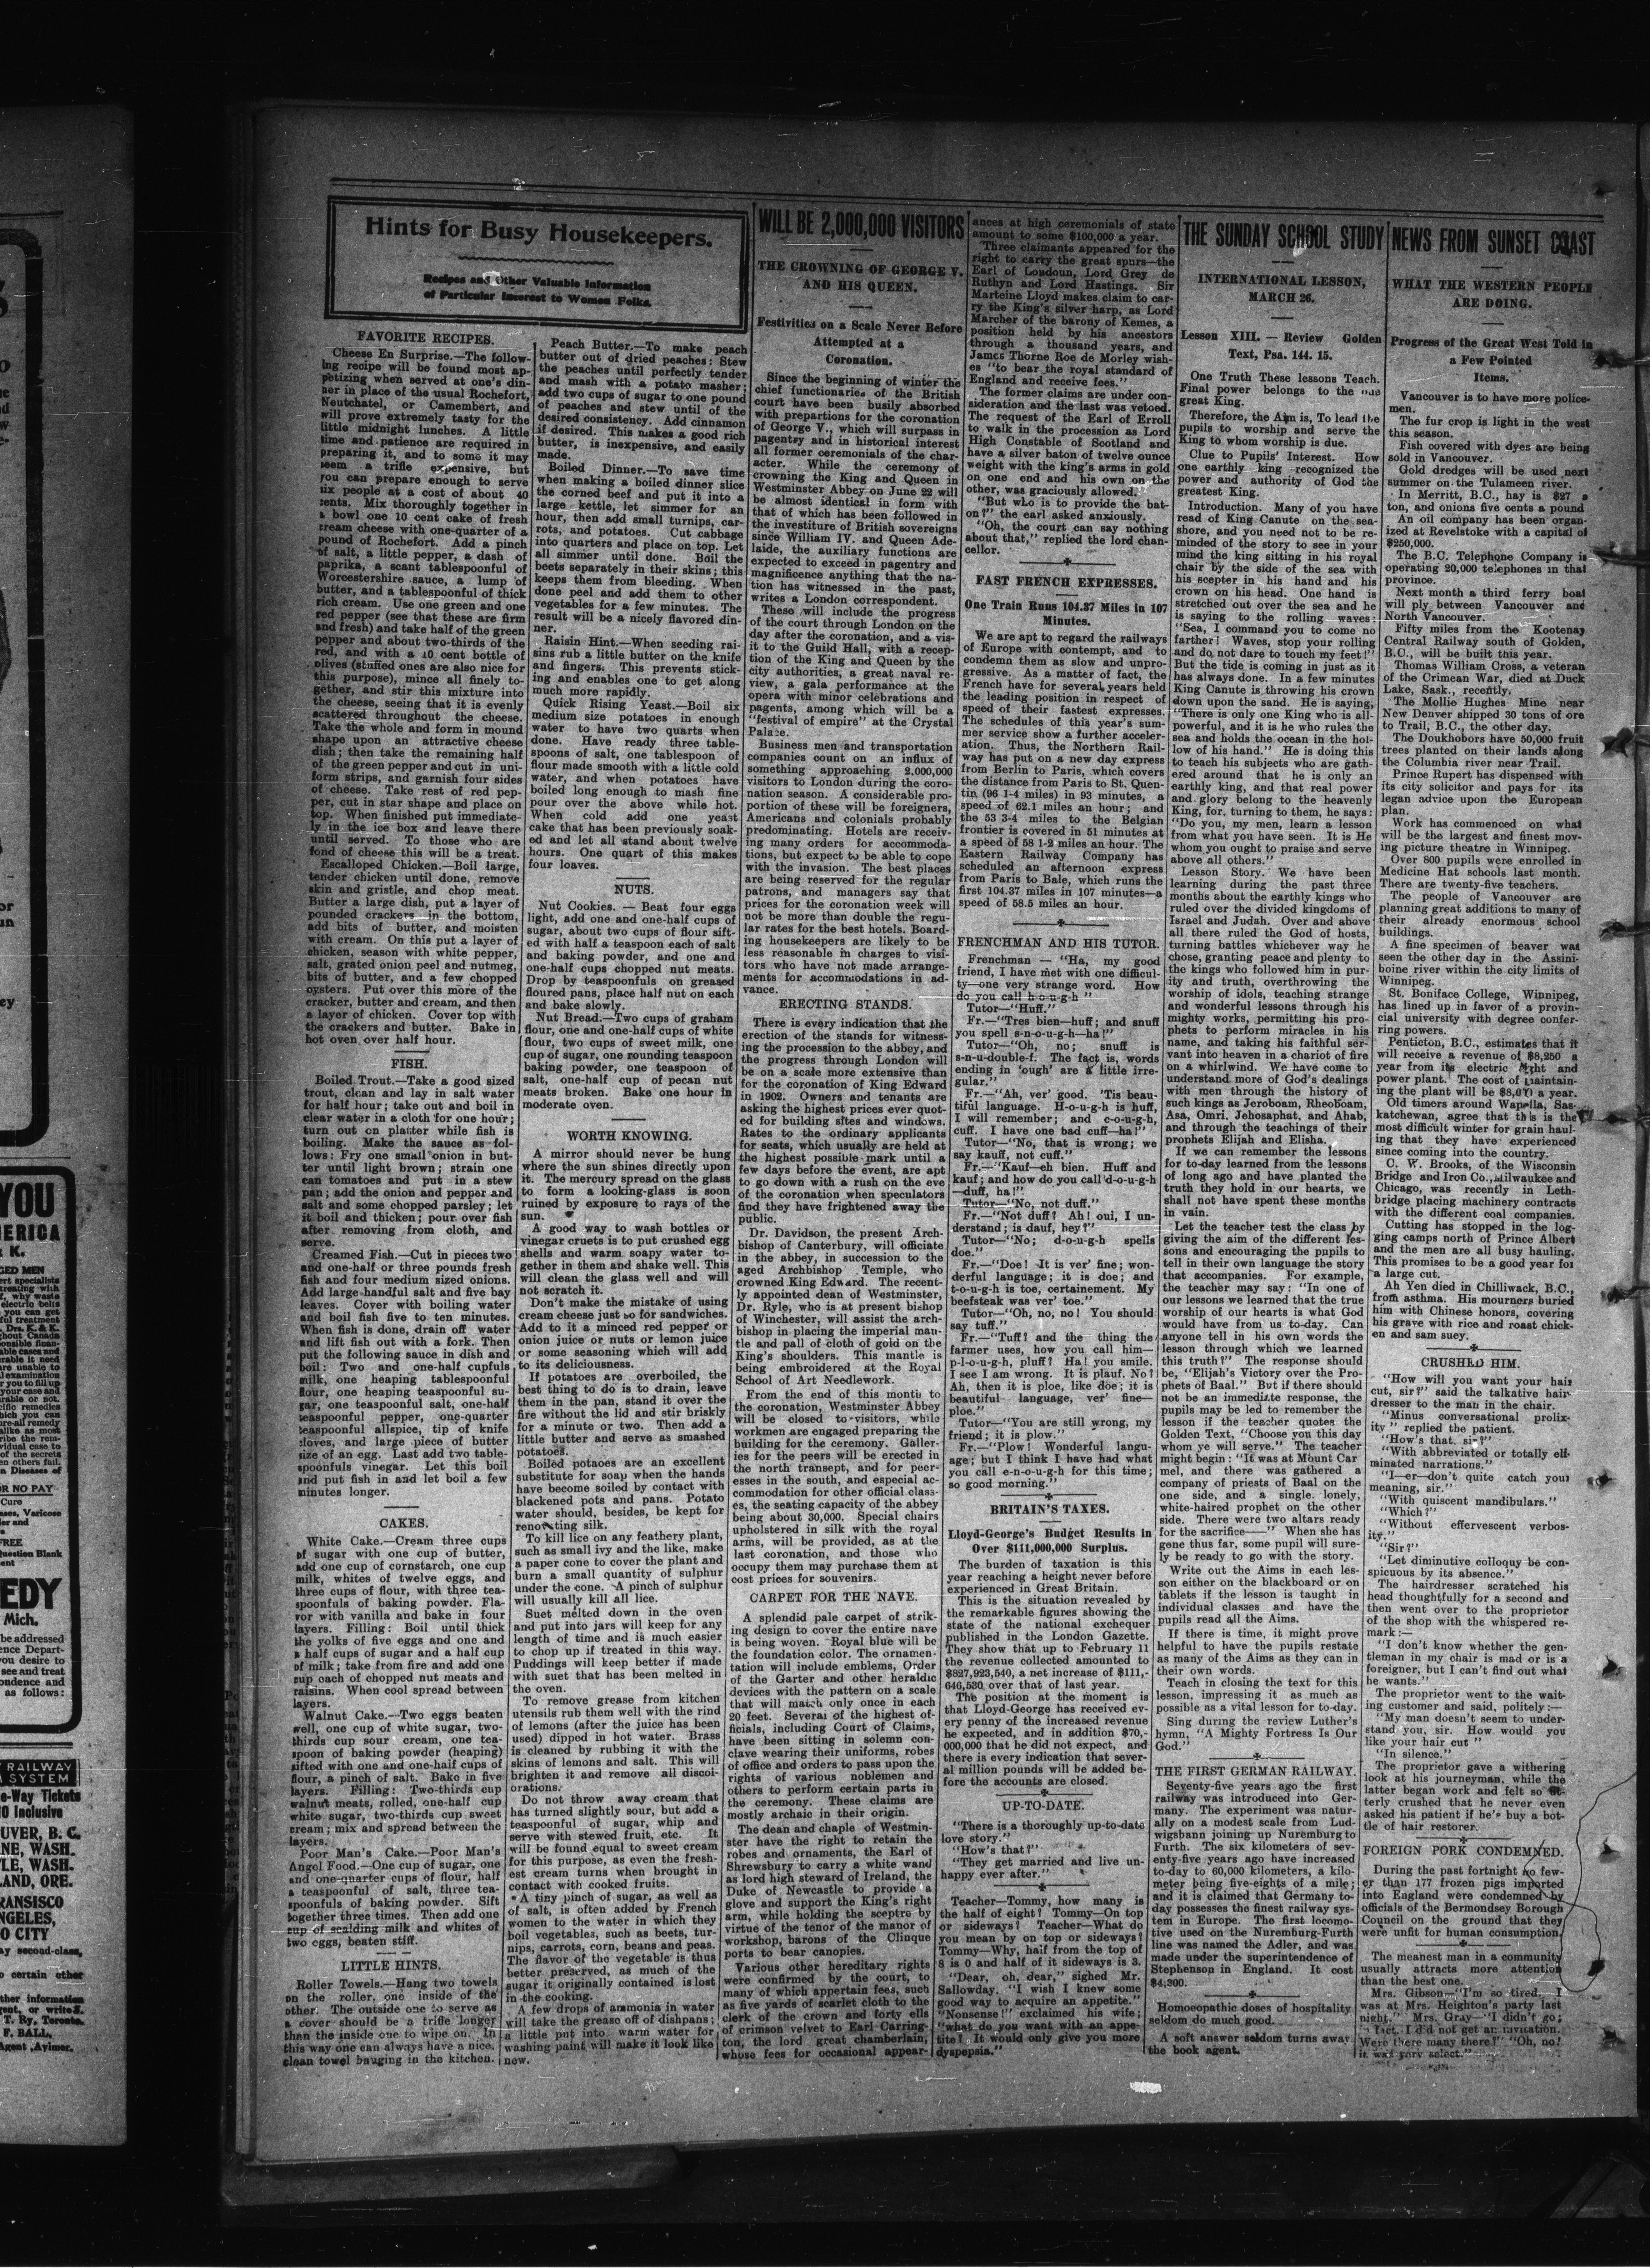 YOU
MERICA
& K.
EDY
Mich.
RAILWAY
SYSTEM
Hints for Busy Housekeepers.
Recipes and Other Valuable Information
of Particular Interest to Women Folks.
FAVORITE RECIPES.
Cheese En Surprise.—The follow-
ing recipe will be found most ap-
petizing when served at one's din-
ner in place of the usual Rochefort,
Neutchatel, or Camembert, and
will prove extremely tasty for the
little midnight lunches. A little
time and patience are required in
preparing it, and to some it may
seem a trifle expensive, but
you can prepare enough to serve
six people at a cost of about 40
cents. Mix thoroughly together in
a bowl one 10 cent cake of fresh
cream cheese with one-quarter of a
pound of Rochefort. Add a pinch
of salt, a little pepper, a dash of
paprika, a scant tablespoonful of
Worcestershire sauce, a lump of
butter, and a tablespoonful of thick
rich cream. Use one green and one
red pepper (see that these are firm
and fresh) and take half of the green
pepper and about two-thirds of the
red, and with a 10 cent bottle of
olives (stuffed ones are also nice for
this purpose), mince all finely to-
gether, and stir this mixture into
the cheese, seeing that it is evenly
scattered throughout the cheese.
Take the whole and form in mound
shape upon an attractive cheese
dish; then take the remaining half
of the green pepper and cut in uni-
form strips, and garnish four sides
of cheese. Take rest of red pep-
per, cut in star shape and place on
top. When finished put immediate-
ly in the ice box and leave there
until served. To those who are
fond of cheese this will be a treat.
Escalloped Chicken.—Boil large,
tender chicken until done, remove
skin and gristle, and chop meat.
Butter a large dish, put a layer of
pounded crackers in the bottom,
add bits of butter, and moisten
with cream. On this put a layer of
chicken, season with white pepper,
salt, grated onion peel and nutmeg,
bits of butter, and a few chopped
oysters. Put over this more of the
cracker, butter and cream, and then
a layer of chicken. Cover top with
the crackers and butter. Bake in
hot oven over half hour.
FISH.
Boiled Trout.—Take a good sized
trout, clean and lay in salt water
for half hour; take out and boil in
clear water in a cloth for one hour;
turn out on platter while fish is
boiling. Make the sauce as fol-
lows: Fry one small onion in but-
ter until light brown; strain one
can tomatoes and put in a stew
pan; add the onion and pepper and
salt and some chopped parsley; let
it boil and thicken; pour over fish
after removing from cloth, and
serve.
Creamed Fish.—Cut in pieces two
and one-half or three pounds fresh
fish and four medium sized onions.
Add large handful salt and five bay
leaves. Cover with boiling water
and boil fish five to ten minutes.
When fish is done, drain off water
and lift fish out with a fork. Then
put the following sauce in dish and
boil: Two and one-half cupfuls
milk, one heaping tablespoonful
flour, one heaping teaspoonful su-
gar, one teaspoonful salt, one-half
teaspoonful pepper, one-quarter
teaspoonful allspice, tip of knife
cloves, and large piece of butter
size of an egg. Last add two table-
spoonfuls vinegar. Let this boil
and put fish in and let boil a few
minutes longer.
CAKES.
White Cake.—Cream three cups
of sugar with one cup of butter,
add one cup of cornstarch, one cup
milk, whites of twelve eggs, and
three cups of flour, with three tea-
spoonfuls of baking powder. Fla-
vor with vanilla and bake in four
layers. Filling: Boil until thick
the yolks of five eggs and one and
a half cups of sugar and a half cup
of milk; take from fire and add one
cup each of chopped nut meats and
raisins. When cool spread between
layers.
Walnut Cake.—Two eggs beaten
well, one cup of white sugar, two-
thirds cup sour cream, one tea-
spoon of baking powder (heaping)
sifted with one and one-half cups of
flour, a pinch of salt. Bake in five
layers. Filling: Two-thirds cup
walnut meats, rolled, one-half cup
white sugar, two-thirds cup sweet
cream; mix and spread between the
layers.
Poor Man's Cake.—Poor Man's
Angel Food.—One cup of sugar, one
and one-quarter cups of flour, half
a teaspoonful of salt, three tea-
spoonfuls of baking powder. Sift
together three times. Then add one
cup of scalding milk and whites of
two eggs, beaten stiff.
LITTLE HINTS.
Roller Towels.—Hang two towels
on the roller, one inside of the
other. The outside one to serve as
a cover should be a trifle longer
than the inside one to wipe on. In
this way one can always have a nice,
clean towel hanging in the kitchen.
Peach Butter.—To make peach
butter out of dried peaches: Stew
the peaches until perfectly tender
and mash with a potato masher;
add two cups of sugar to one pound
of peaches and stew until of the
desired consistency. Add cinnamon
if desired. This makes a good rich
butter, is inexpensive, and easily
made.
Boiled Dinner.—To save time
when making a boiled dinner slice
the corned beef and put it into a
large kettle, let simmer for an
hour, then add small turnips, car-
rots, and potatoes. Cut cabbage
into quarters and place on top. Let
all simmer until done. Boil the
beets separately in their skins; this
keeps them from bleeding. When
done peel and add them to other
vegetables for a few minutes. The
result will be a nicely flavored din-
ner.
Raisin Hint.—When seeding rai-
sins rub a little butter on the knife
and fingers. This prevents stick-
ing and enables one to get along
much more rapidly.
Quick Rising Yeast.—Boil six
medium size potatoes in enough
water to have two quarts when
done. Have ready three table-
spoons of salt, one tablespoon of
flour made smooth with a little cold
water, and when potatoes have
boiled long enough to mash fine
pour over the above while hot.
When cold add one yeast
cake that has been previously soak-
ed and let all stand about twelve
hours. One quart of this makes
four loaves.
NUTS.
Nut Cookies. — Beat four eggs
light, add one and one-half cups of
sugar, about two cups of flour sift-
ed with half a teaspoon each of salt
and baking powder, and one and
one-half cups chopped nut meats.
Drop by teaspoonfuls on greased
floured pans, place half nut on each
and bake slowly.
Nut Bread.—Two cups of graham
flour, one and one-half cups of white
flour, two cups of sweet milk, one
cup of sugar, one rounding teaspoon
baking powder, one teaspoon of
salt, one-half cup of pecan nut
meats broken. Bake one hour in
moderate oven.
WORTH KNOWING.
A mirror should never be hung
where the sun shines directly upon
it. The mercury spread on the glass
to form a looking-glass is soon
ruined by exposure to rays of the
sun.
A good way to wash bottles or
vinegar cruets is to put crushed egg
shells and warm soapy water to-
gether in them and shake well. This
will clean the glass well and will
not scratch it.
Don't make the mistake of using
cream cheese just so for sandwiches.
Add to it a minced red pepper or
onion juice or nuts or lemon juice
or some seasoning which will add
to its deliciousness.
If potatoes are overboiled, the
best thing to do is to drain, leave
them in the pan, stand it over the
fire without the lid and stir briskly
for a minute or two. Then add a
little butter and serve as smashed
potatoes.
Boiled potaoes are an excellent
substitute for soap when the hands
have become soiled by contact with
blackened pots and pans. Potato
water should, besides, be kept for
renovating silk.
To kill lice on any feathery plant,
such as small ivy and the like, make
a paper cone to cover the plant and
burn a small quantity of sulphur
under the cone. A pinch of sulphur
will usually kill all lice.
Suet melted down in the oven
and put into jars will keep for any
length of time and is much easier
to chop up if treated in this way.
Puddings will keep better if made
with suet that has been melted in
the oven.
To remove grease from kitchen
utensils rub them well with the rind
of lemons (after the juice has been
used) dipped in hot water. Brass
is cleaned by rubbing it with the
skins of lemons and salt. This will
brighten it and remove all discol-
orations.
Do not throw away cream that
has turned slightly sour, but add a
teaspoonful of sugar, whip and
serve with stewed fruit, etc. It
will be found equal to sweet cream
for this purpose, as even the fresh-
est cream turns when brought in
contact with cooked fruits.
A tiny pinch of sugar, as well as
of salt, is often added by French
women to the water in which they
boil vegetables, such as beets, tur-
nips, carrots, corn, beans and peas.
The flavor of the vegetable is thus
better preserved, as much of the
sugar it originally contained is lost
in the cooking.
A few drops of ammonia in water
will take the grease off of dishpans;
a little put into warm water for
washing paint will make it look like
new.
WILL BE 2,000,000 VISITORS
THE CROWNING OF GEORGE V.
AND HIS QUEEN.
Festivities on a Scale Never Before
Attempted at a
Coronation.
Since the beginning of winter the
chief functionaries of the British
court have been busily absorbed
with prepartions for the coronation
of George V., which will surpass in
pagentry and in historical interest
all former ceremonials of the char-
acter. While the ceremony of
crowning the King and Queen in
Westminster Abbey on June 22 will
be almost identical in form with
that of which has been followed in
the investiture of British sovereigns
since William IV. and Queen Ade-
laide, the auxiliary functions are
expected to exceed in pagentry and
magnificence anything that the na-
tion has witnessed in the past,
writes a London correspondent.
These will include the progress
of the court through London on the
day after the coronation, and a vis-
it to the Guild Hall, with a recep-
tion of the King and Queen by the
city authorities, a great naval re-
view, a gala performance at the
opera with minor celebrations and
pagents, among which will be a
"festival of empire" at the Crystal
Palace.
Business men and transportation
companies count on an influx of
something approaching 2,000,000
visitors to London during the coro-
nation season. A considerable pro-
portion of these will be foreigners,
Americans and colonials probably
predominating. Hotels are receiv-
ing many orders for accommoda-
tions, but expect to be able to cope
with the invasion. The best places
are being reserved for the regular
patrons, and managers say that
prices for the coronation week will
not be more than double the regu-
lar rates for the best hotels. Board-
ing housekeepers are likely to be
less reasonable in charges to visi-
tors who have not made arrange-
ments for accommodations in ad-
vance.
ERECTING STANDS.
There is every indication that the
erection of the stands for witness-
ing the procession to the abbey, and
the progress through London will
be on a scale more extensive than
for the coronation of King Edward
in 1902. Owners and tenants are
asking the highest prices ever quot-
ed for building sites and windows.
Rates to the ordinary applicants
for seats, which usually are held at
the highest possible mark until a
few days before the event, are apt
to go down with a rush on the eve
of the coronation when speculators
find they have frightened away the
public.
Dr. Davidson, the present Arch-
bishop of Canterbury, will officiate
in the abbey, in succession to the
aged Archbishop Temple, who
crowned King Edward. The recent-
ly appointed dean of Westminster,
Dr. Ryle, who is at present bishop
of Winchester, will assist the arch-
bishop in placing the imperial man-
tle and pall of cloth of gold on the
King's shoulders. This mantle is
being embroidered at the Royal
School of Art Needlework.
From the end of this month to
the coronation, Westminster Abbey
will be closed to visitors, while
workmen are engaged preparing the
building for the ceremony. Galler-
ies for the peers will be erected in
the north transept, and for peer-
esses in the south, and especial ac-
commodation for other official class-
es, the seating capacity of the abbey
being about 30,000. Special chairs
upholstered in silk with the royal
arms, will be provided, as at the
last coronation, and those who
occupy them may purchase them at
cost prices for souvenirs.
CARPET FOR THE NAVE.
A splendid pale carpet of strik-
ing design to cover the entire nave
is being woven. Royal blue will be
the foundation color. The ornamen-
tation will include emblems, Order
of the Garter and other heraldic
devices with the pattern on a scale
that will match only once in each
20 feet. Several of the highest of-
ficials, including Court of Claims,
have been sitting in solemn con-
clave wearing their uniforms, robes
of office and orders to pass upon the
rights of various noblemen and
others to perform certain parts in
the ceremony. These claims are
mostly archaic in their origin.
The dean and chaple of Westmin-
ster have the right to retain the
robes and ornaments, the Earl of
Shrewsbury to carry a white wand
as lord high steward of Ireland, the
Duke of Newcastle to provide a
glove and support the King's right
arm, while holding the sceptre by
virtue of the tenor of the manor of
workshop, barons of the Clinque
ports to bear canopies.
Various other hereditary rights
were confirmed by the court, to
many of which appertain fees, such
as five yards of scarlet cloth to the
clerk of the crown and forty ells
of crimson velvet to Earl Carring-
ton, the lord great chamberlain,
whose fees for occasional appear-
ances at high ceremonials of state
amount to some $100,000 a year.
Three claimants appeared for the
right to carry the great spurs—the
Earl of Loudoun, Lord Grey de
Ruthyn and Lord Hastings. Sir
Marteine Lloyd makes claim to car-
ry the King's silver harp, as Lord
Marcher of the barony of Kemes, a
position held by his ancestors
through a thousand years, and
James Thorne Roe de Morley wish-
es "to bear the royal standard of
England and receive fees."
The former claims are under con-
sideration and the last was vetoed.
The request of the Earl of Erroll
to walk in the procession as Lord
High Constable of Scotland and
have a silver baton of twelve ounce
weight with the king's arms in gold
on one end and his own on the
other, was graciously allowed.
"But who is to provide the bat-
on?" the earl asked anxiously.
"Oh, the court can say nothing
about that," replied the lord chan-
cellor.
FAST FRENCH EXPRESSES.
One Train Runs 104.37 Miles in 107
Minutes.
We are apt to regard the railways
of Europe with contempt, and to
condemn them as slow and unpro-
gressive. As a matter of fact, the
French have for several years held
the leading position in respect of
speed of their fastest expresses.
The schedules of this year's sum-
mer service show a further acceler-
ation. Thus, the Northern Rail-
way has put on a new day express
from Berlin to Paris, which covers
the distance from Paris to St. Quen-
tin (96 1-4 miles) in 93 minutes, a
speed of 62.1 miles an hour; and
the 53 3-4 miles to the Belgian
frontier is covered in 51 minutes at
a speed of 58 1-2 miles an hour. The
Eastern Railway Company has
scheduled an afternoon express
from Paris to Bale, which runs the
first 104.37 miles in 107 minutes—a
speed of 58.5 miles an hour.
FRENCHMAN AND HIS TUTOR.
Frenchman — "Ha, my good
friend, I have met with one difficul-
ty—one very strange word. How
do you call h-o-u-g-h "
Tutor—"Huff."
Fr.—"Tres bien—huff; and snuff
you spell s-n-o-u-g-h—ha!"
Tutor—"Oh, no; snuff is
s-n-u-double-f. The fact is, words
ending in 'ough' are a little irre-
gular."
Fr.—"Ah, ver' good. 'Tis beau-
tiful language. H-o-u-g-h is huff,
I will remember; and c-o-u-g-h,
cuff. I have one bad cuff—ha!"
Tutor—"No, that is wrong; we
say kauff, not cuff."
Fr.—"Kauf—eh bien. Huff and
kauf; and how do you call d-o-u-g-h
—duff, ha!"
Tutor—"No, not duff."
Fr.—"Not duff? Ah! oui, I un-
derstand; is dauf, hey?"
Tutor—"No; d-o-u-g-h spells
doe."
Fr.—"Doe! It is ver' fine; won-
derful language; it is doe; and
t-o-u-g-h is toe, certainement. My
beefsteak was ver' toe."
Tutor—"Oh, no, no! You should
say tuff."
Fr.—"Tuff? and the thing the
farmer uses, how you call him—
p-l-o-u-g-h, pluff? Ha! you smile.
I see I am wrong. It is plauf. No?
Ah, then it is ploe, like doe; it is
beautiful language, ver' fine—
ploe."
Tutor—"You are still wrong, my
friend; it is plow."
Fr.—"Plow! Wonderful langu-
age; but I think I have had what
you call e-n-o-u-g-h for this time;
so good morning."
BRITAIN'S TAXES.
Lloyd-George's Budget Results in
Over $111,000,000 Surplus.
The burden of taxation is this
year reaching a height never before
experienced in Great Britain.
This is the situation revealed by
the remarkable figures showing the
state of the national exchequer
published in the London Gazette.
They show that up to February 11
the revenue collected amounted to
$827,923,540, a net increase of $111,-
646,530 over that of last year.
The position at the moment is
that Lloyd-George has received ev-
ery penny of the increased revenue
he expected, and in addition $70,-
000,000 that he did not expect, and
there is every indication that sever-
al million pounds will be added be-
fore the accounts are closed.
UP-TO-DATE.
"There is a thoroughly up-to-date
love story."
"How's that?"
"They get married and live un-
happy ever after."
Teacher—Tommy, how many is
the half of eight? Tommy—On top
or sideways? Teacher—What do
you mean by on top or sideways?
Tommy—Why, half from the top of
8 is 0 and half of it sideways is 3.
"Dear, oh, dear," sighed Mr.
Sallowday. "I wish I knew some
good way to acquire an appetite."
"Nonsense!" exclaimed his wife;
"what do you want with an appe-
tite? It would only give you more
dyspepsia."
THE SUNDAY SCHOOL STUDY
INTERNATIONAL LESSON,
MARCH 26.
Lesson XIII. — Review Golden
Text, Psa. 144. 15.
One Truth These lessons Teach.
Final power belongs to the one
great King.
Therefore, the Aim is, To lead the
pupils to worship and serve the
King to whom worship is due.
Clue to Pupils' Interest. How
one earthly king recognized the
power and authority of God the
greatest King.
Introduction. Many of you have
read of King Canute on the sea-
shore, and you need not to be re-
minded of the story to see in your
mind the king sitting in his royal
chair by the side of the sea with
his scepter in his hand and his
crown on his head. One hand is
stretched out over the sea and he
is saying to the rolling waves:
"Sea, I command you to come no
farther! Waves, stop your rolling
and do not dare to touch my feet!"
But the tide is coming in just as it
has always done. In a few minutes
King Canute is throwing his crown
down upon the sand. He is saying,
"There is only one King who is all-
powerful, and it is he who rules the
sea and holds the ocean in the hol-
low of his hand." He is doing this
to teach his subjects who are gath-
ered around that he is only an
earthly king, and that real power
and glory belong to the heavenly
King, for, turning to them, he says:
"Do you, my men, learn a lesson
from what you have seen. It is He
whom you ought to praise and serve
above all others."
Lesson Story. We have been
learning during the past three
months about the earthly kings who
ruled over the divided kingdoms of
Israel and Judah. Over and above
all there ruled the God of hosts,
turning battles whichever way he
chose, granting peace and plenty to
the kings who followed him in pur-
ity and truth, overthrowing the
worship of idols, teaching strange
and wonderful lessons through his
mighty works, permitting his pro-
phets to perform miracles in his
name, and taking his faithful ser-
vant into heaven in a chariot of fire
on a whirlwind. We have come to
understand more of God's dealings
with men through the history of
such kings as Jeroboam, Rheoboam,
Asa, Omri, Jehosaphat, and Ahab,
and through the teachings of their
prophets Elijah and Elisha.
If we can remember the lessons
for to-day learned from the lessons
of long ago and have planted the
truth they hold in our hearts, we
shall not have spent these months
in vain.
Let the teacher test the class by
giving the aim of the different les-
sons and encouraging the pupils to
tell in their own language the story
that accompanies. For example,
the teacher may say: "In one of
our lessons we learned that the true
worship of our hearts is what God
would have from us to-day. Can
anyone tell in his own words the
lesson through which we learned
this truth?" The response should
be, "Elijah's Victory over the Pro-
phets of Baal." But if there should
not be an immediate response, the
pupils may be led to remember the
lesson if the teacher quotes the
Golden Text, "Choose you this day
whom ye will serve." The teacher
might begin: "It was at Mount Car
mel, and there was gathered a
company of priests of Baal on the
one side, and a single, lonely,
white-haired prophet on the other
side. There were two altars ready
for the sacrifice—" When she has
gone thus far, some pupil will sure-
ly be ready to go with the story.
Write out the Aims in each les-
son either on the blackboard or on
tablets if the lesson is taught in
individual classes and have the
pupils read all the Aims.
If there is time, it might prove
helpful to have the pupils restate
as many of the Aims as they can in
their own words.
Teach in closing the text for this
lesson, impressing it as much as
possible as a vital lesson for to-day.
Sing during the review Luther's
hymn, "A Mighty Fortress Is Our
God."
THE FIRST GERMAN RAILWAY.
Seventy-five years ago the first
railway was introduced into Ger-
many. The experiment was natur-
ally on a modest scale from Lud-
wigsbann joining up Nuremburg to
Furth. The six kilometers of sev-
enty-five years ago have increased
to-day to 60,000 kilometers, a kilo-
meter being five-eights of a mile;
and it is claimed that Germany to-
day possesses the finest railway sys-
tem in Europe. The first locomo-
tive used on the Nuremburg-Furth
line was named the Adler, and was
made under the superintendence of
Stephenson in England. It cost
$4,300.
Homoeopathic doses of hospitality
seldom do much good.
A soft answer seldom turns away
the book agent.
NEWS FROM SUNSET COAST
WHAT THE WESTERN PEOPLE
ARE DOING.
Progress of the Great West Told in
a Few Pointed
Items.
Vancouver is to have more police-
men.
The fur crop is light in the west
this season.
Fish covered with dyes are being
sold in Vancouver.
Gold dredges will be used next
summer on the Tulameen river.
In Merritt, B.C., hay is $27 a
ton, and onions five cents a pound
An oil company has been organ-
ized at Revelstoke with a capital of
$250,000.
The B.C. Telephone Company is
operating 20,000 telephones in that
province.
Next month a third ferry boat
will ply between Vancouver and
North Vancouver.
Fifty miles from the Kootenay
Central Railway south of Golden,
B.C., will be built this year.
Thomas William Cross, a veteran
of the Crimean War, died at Duck
Lake, Sask., recently.
The Mollie Hughes Mine near
New Denver shipped 30 tons of ore
to Trail, B.C., the other day.
The Doukhobors have 50,000 fruit
trees planted on their lands along
the Columbia river near Trail.
Prince Rupert has dispensed with
its city solicitor and pays for its
legan advice upon the European
plan.
Work has commenced on what
will be the largest and finest mov-
ing picture theatre in Winnipeg.
Over 800 pupils were enrolled in
Medicine Hat schools last month.
There are twenty-five teachers.
The people of Vancouver are
planning great additions to many of
their already enormous school
buildings.
A fine specimen of beaver was
seen the other day in the Assini-
boine river within the city limits of
Winnipeg.
St. Boniface College, Winnipeg,
has lined up in favor of a provin-
cial university with degree confer-
ring powers.
Penticton, B.C., estimates that it
will receive a revenue of $8,250 a
year from its electric light and
power plant. The cost of maintain-
ing the plant will be a year.
Old timers around Wapella, Sas-
katchewan, agree that this is the
most difficult winter for grain haul-
ing that they have experienced
since coming into the country.
C. W. Brooks, of the Wisconsin
Bridge and Iron Co., Milwaukee and
Chicago, was recently in Leth-
bridge placing machinery contracts
with the different coal companies.
Cutting has stopped in the log-
ging camps north of Prince Albert
and the men are all busy hauling.
This promises to be a good year for
a large cut.
Ah Yen died in Chilliwack, B.C.,
from asthma. His mourners buried
him with Chinese honors, covering
his grave with rice and roast chick-
en and sam suey.
CRUSHED HIM.
"How will you want your hair
cut, sir?" said the talkative hair-
dresser to the man in the chair.
"Minus conversational prolix-
ity" replied the patient.
"How's that, sir?"
"With abbreviated or totally eli-
minated narrations."
"I—er—don't quite catch your
meaning, sir."
"With quiscent mandibulars."
"Which?"
"Without effervescent verbos-
ity."
"Sir?"
"Let diminutive colloquy be con-
spicuous by its absence."
The hairdresser scratched his
head thoughtfully for a second and
then went over to the proprietor
of the shop with the whispered re-
mark:—
"I don't know whether the gen-
tleman in my chair is mad or is a
foreigner, but I can't find out what
he wants."
The proprietor went to the wait-
ing customer and said, politely:—
"My man doesn't seem to under-
stand you, sir. How would you
like your hair cut "
"In silence."
The proprietor gave a withering
look at his journeyman, while the
latter began work and felt so ut-
terly crushed that he never even
asked his patient if he'd buy a bot-
tle of hair restorer.
FOREIGN PORK CONDEMNED.
During the past fortnight no few-
er than 177 frozen pigs imported
into England were condemned by
officials of the Bermondsey Borough
Council on the ground that they
were unfit for human consumption.
The meanest man in a community
usually attracts more attention
than the best one.
Mrs. Gibson—"I'm so tired. I
was at Mrs. Heighton's party last
night." Mrs. Gray—"I didn't go;
in fact, I did not get an invitation.
Were there many there?" "Oh, no!
it was very select."